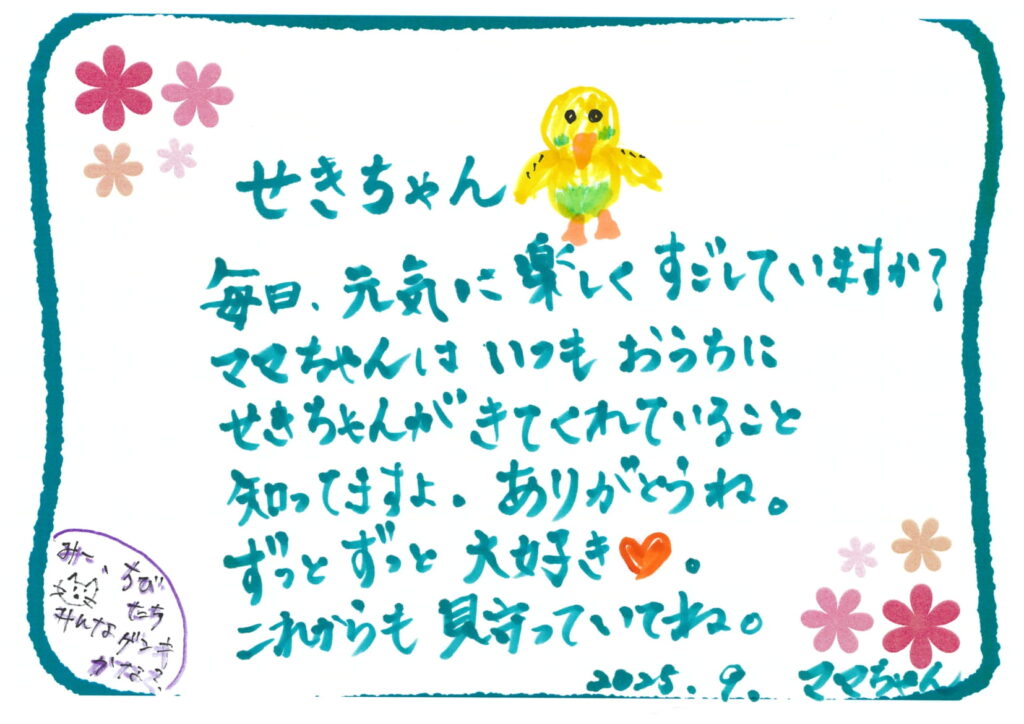 せきちゃん
毎日、元気に楽しくすごしていますか?
ママちゃんは いつも おうちに
せきちゃんが きてくれていること
知ってますよ。ありがとうね。
ずっと ずっと 大好き❤。
これからも 見守っていてね。
2025.9. ママちゃん
みー、ちび
たち
みんなゲンキ
かなぁ